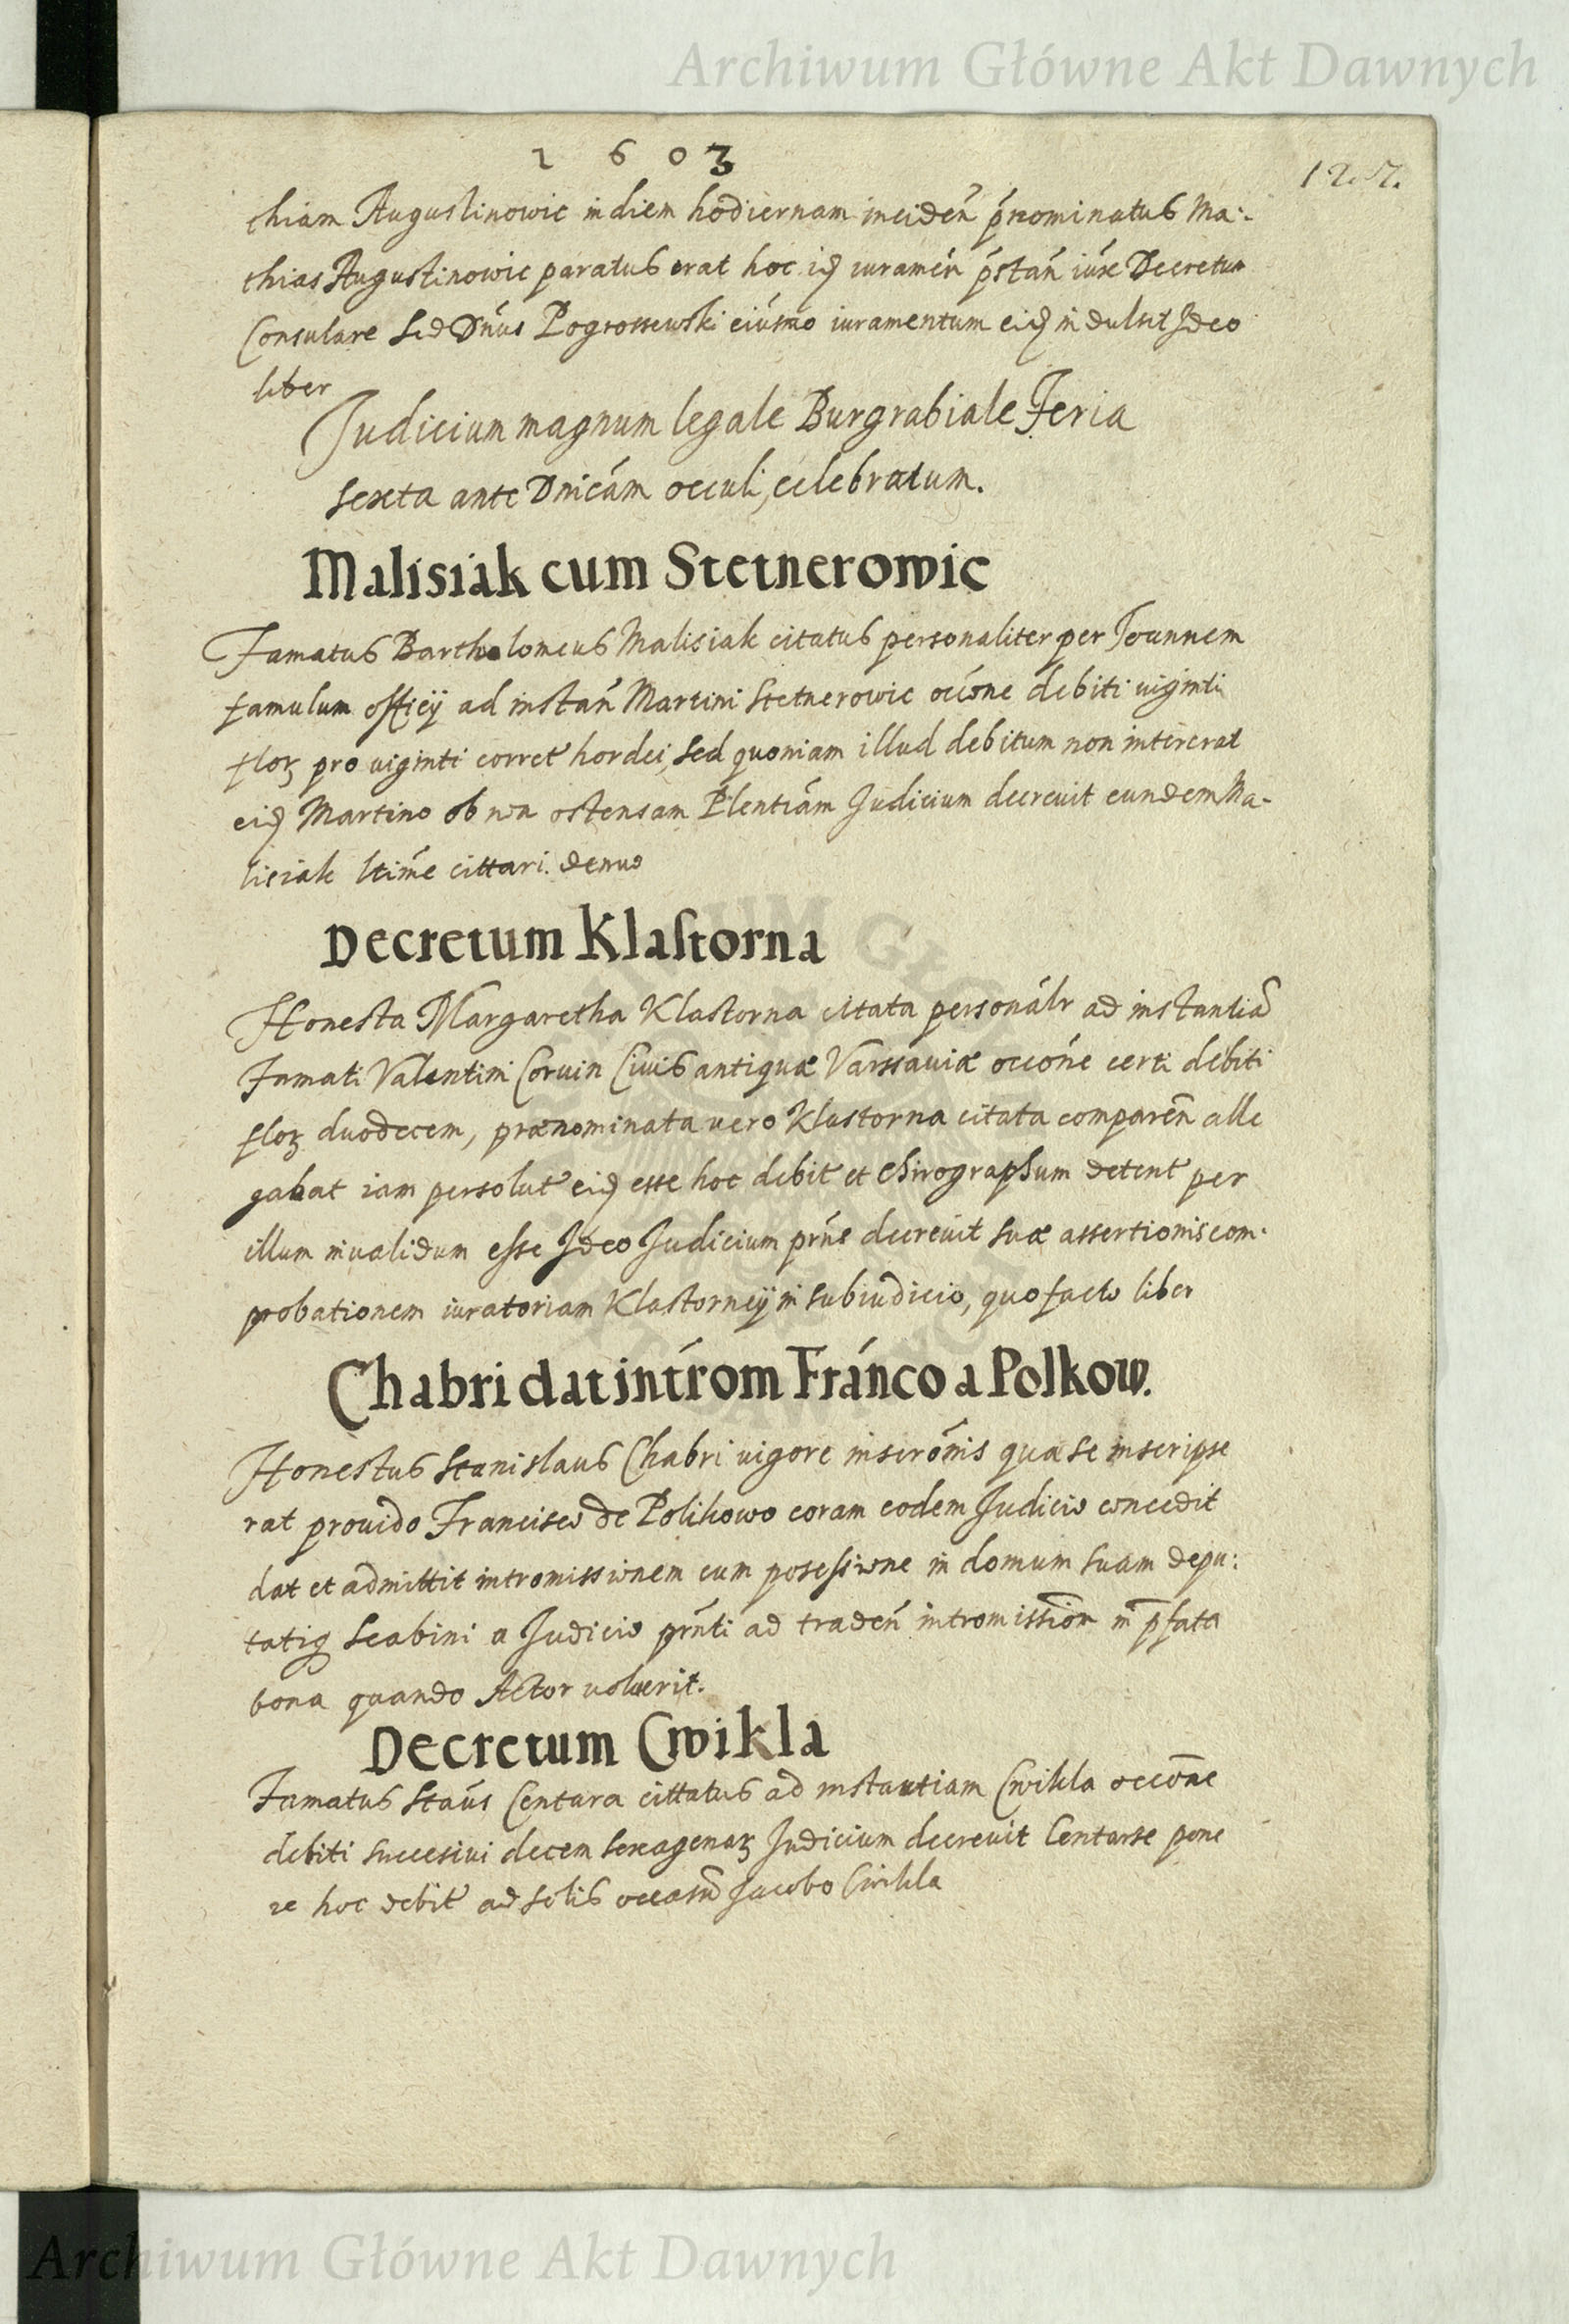 Archiwum Główne Akt Dawnych
1 6 0 3
127.
thiam Augustinowic in diem hodiernam inciden̄ ṕnominatus Ma:
thias Augustinowic paratus erat hoc iđ iuramén p̄stán iúxe Decretum
Consulare Sed Dńus Pogrossewski eiúsmo iuramentum eiđ indulsit Ideo
liber
Judicium magnum legale Burgrabiale Feria
sexta ante Dnicám occuli, celebratum.
Malisiak cum Stetnerowic
Famatus Bartholomeus Malisiak citatus personaliter per Joannem
famulum officÿ ad instań Martini Stetnerowic occóne debiti uiginti
floꝝ pro uiginti corret hordei, sed quoniam illud debitum non intererat
eiđ Martino ob non ostensam Plentiám Judicium decreuit eundem Ma-
lisiak ltimé cittari denuo
Decretum Klastorna
Honesta Margaretha Klastorna citata personálr ad instantiā
Famati Valentini Coruin Ciuis antiquæ Varssauiæ occóne certi debiti
floꝝ duodecem, prænominata uero Klastorna citata comparen̄ alle
gabat iam persolut eiđ esse hoc debit et chirographum detent per
illum inualidum esse Ideo Judicium prńs decreuit suæ assertionis com-
probationem iuratoriam Klastorneÿ in subiudicio, quo facto liber
Chabri dat intŕom Fránco a Polkow.
Honestus Stanislaus Chabri uigore inscrónis qua se inscripse
rat prouido Francisco de Polikowo coram eodem Judicio concedit
dat et admittit intromissionem cum posessione in domum suam depu:
tatiq Scabini a Judicio prńti ad tradeń intromissiōn in p̄fata
bona quando Actor uoluerit.
Decretum Cwikla
Famatus Staús Centara cittatus ad instantiam Cwikla occōne
debiti succesiui decem sexagenaꝝ Judicium decreuit Centarse pone
re hoc debit ad solis occasū Jacobo Cwikla
Archiwum Główne Akt Dawnych